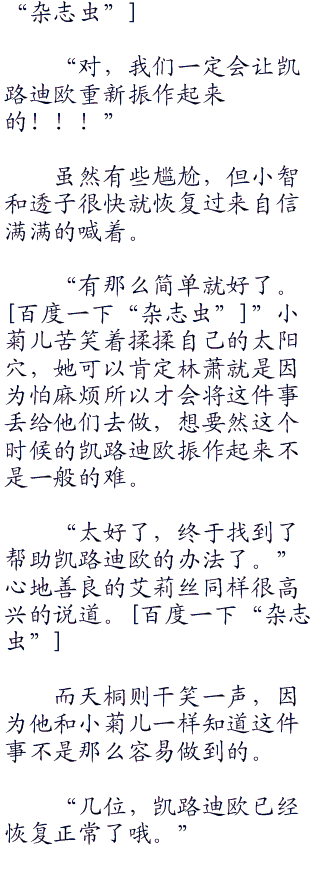 “杂志虫”]
“对，我们一定会让凯
路迪欧重新振作起来
的！！！”
虽然有些尴尬，但小智
和透子很快就恢复过来自信
满满的喊着。
“有那么简单就好了。
[百度一下“杂志虫”]”小
菊儿苦笑着揉揉自己的太阳
穴，她可以肯定林萧就是因
为怕麻烦所以才会将这件事
丢给他们去做，想要然这个
时候的凯路迪欧振作起来不
是一般的难。
“太好了，终于找到了
帮助凯路迪欧的办法了。”
心地善良的艾莉丝同样很高
兴的说道。[百度一下“杂志
虫”]
而天桐则干笑一声，因
为他和小菊儿一样知道这件
事不是那么容易做到的。
“几位，凯路迪欧已经
恢复正常了哦。”